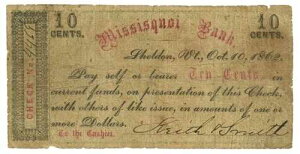 10 CENTS.
10 CENTS.
Missisquoi Bank,
Sheldon, Vt., Oct. 10, 1862.
Pay self or bearer Ten Cents in
current funds, on presentation of this Check,
with others of like issue, in amounts of one or
more Dollars.
To the Cashier.
CHECK No.